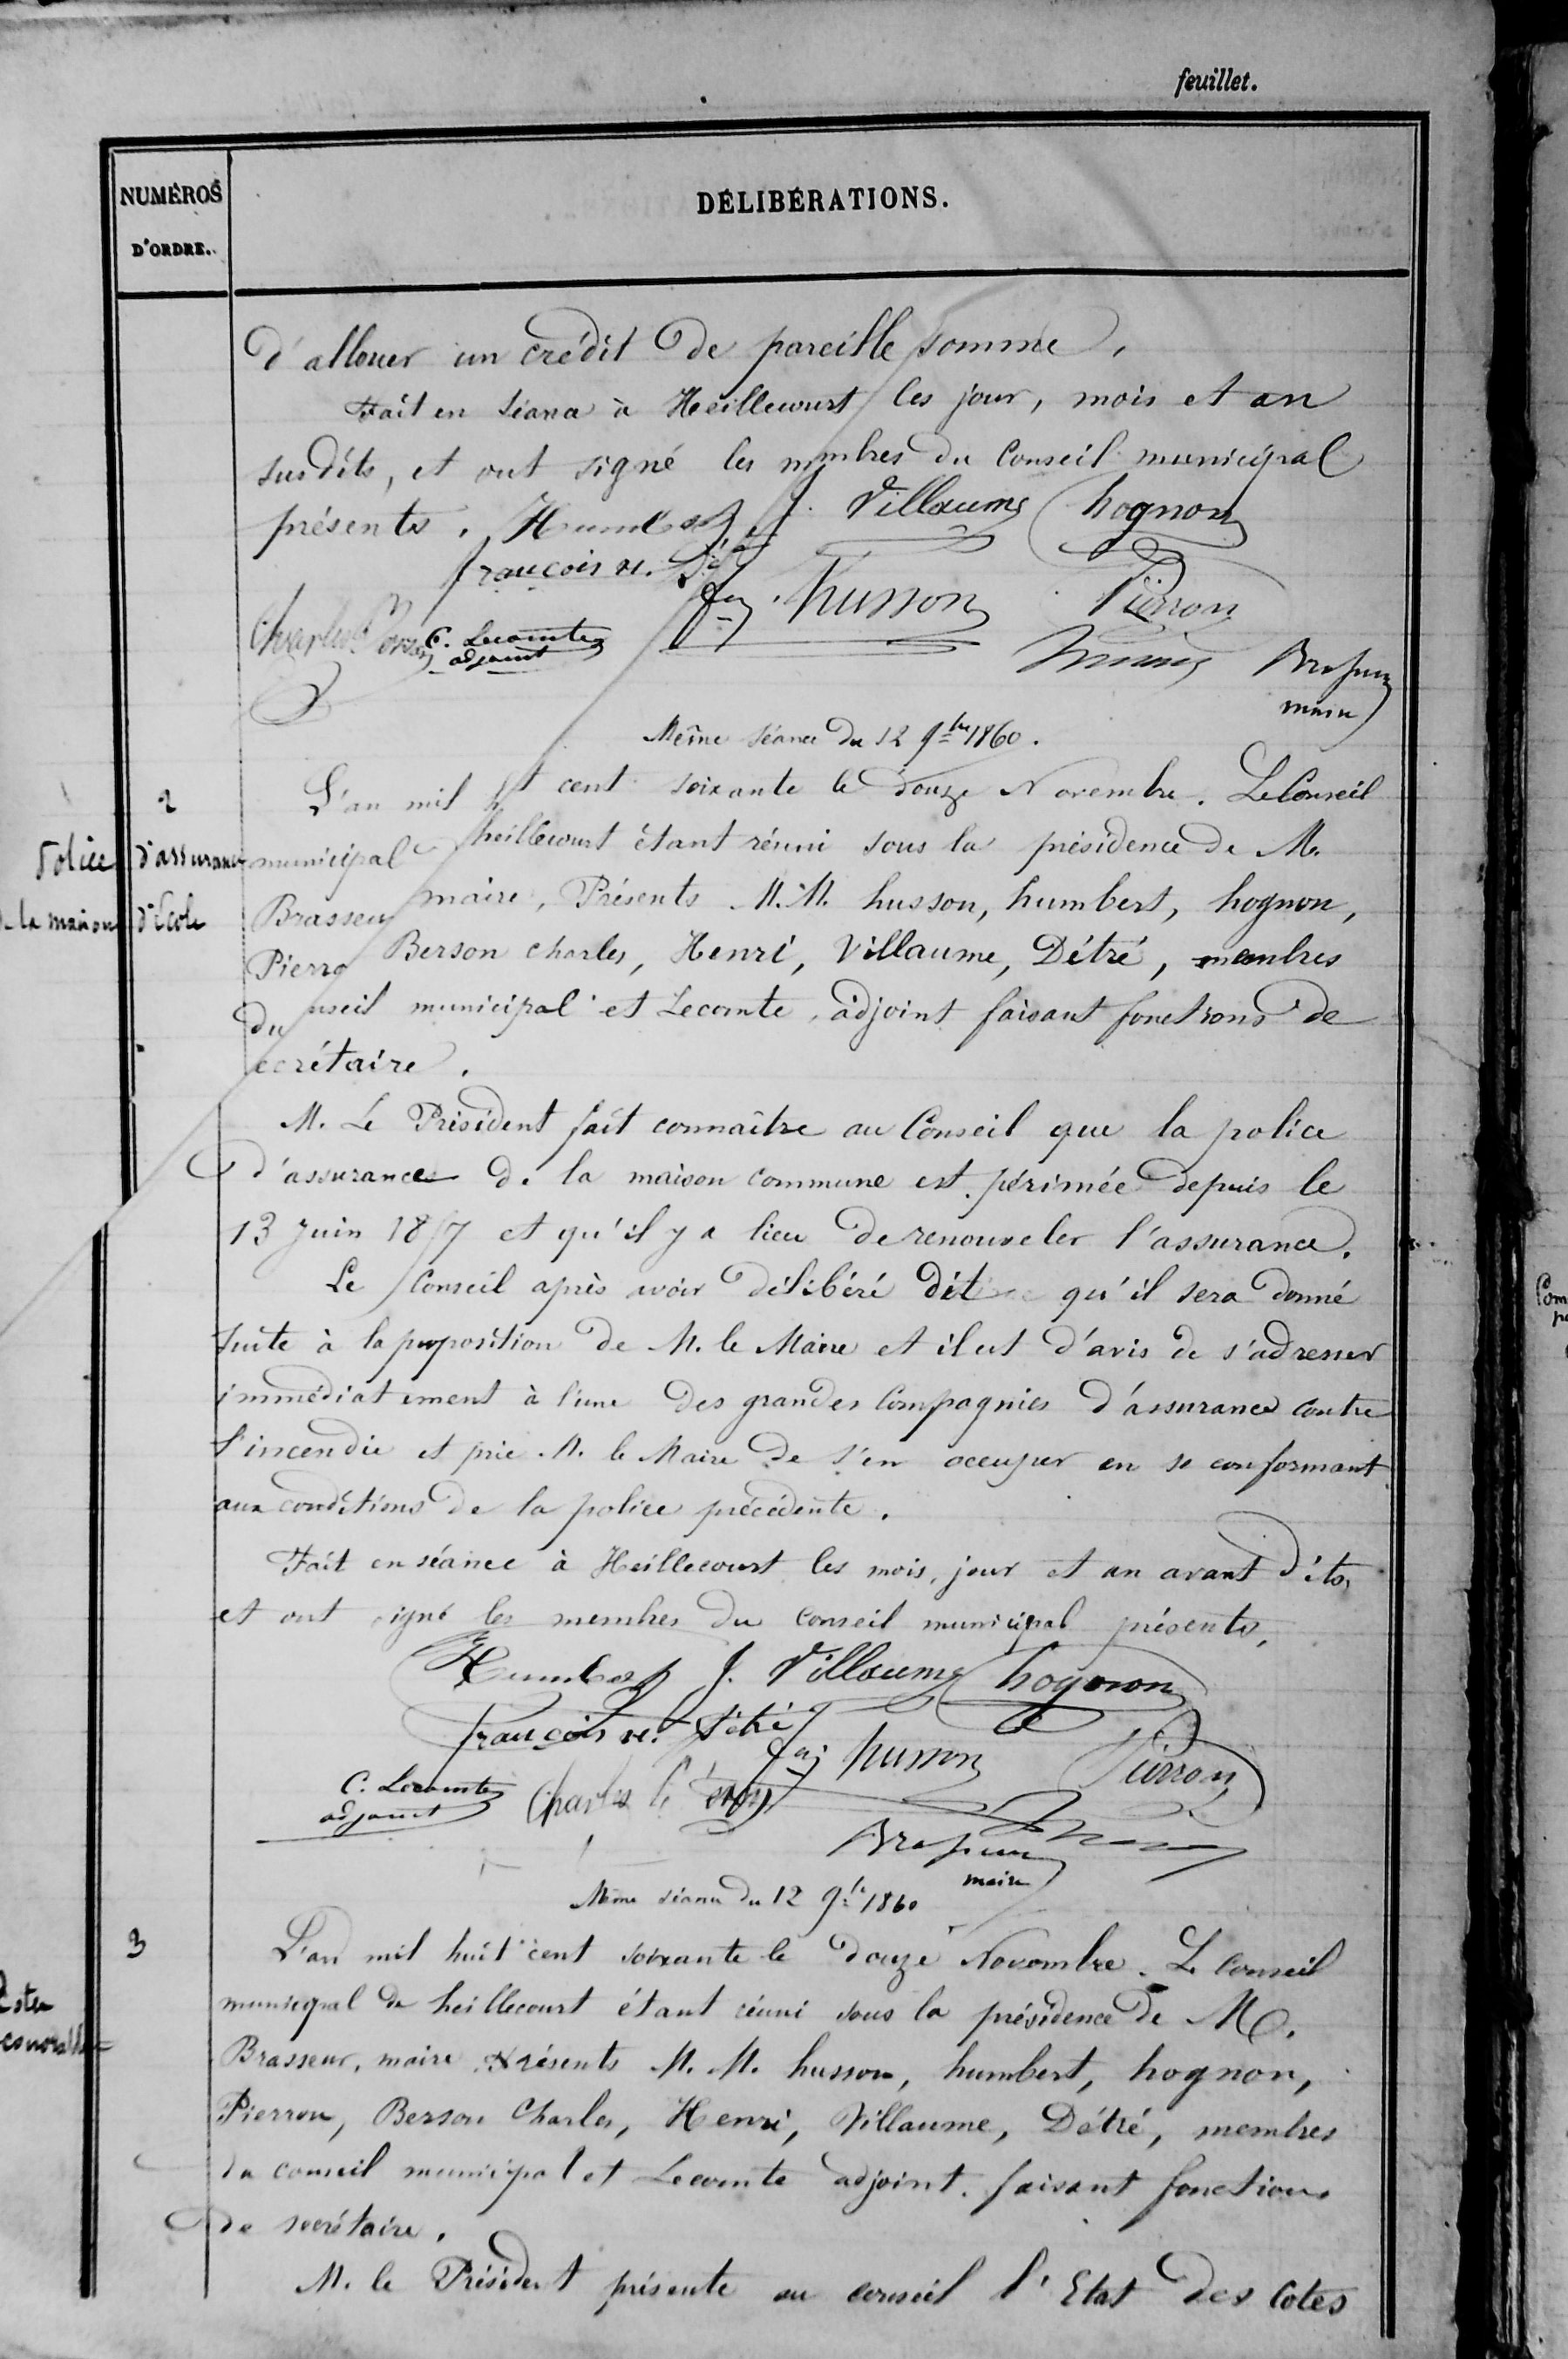 feuillet.
NUMÉROS
D'ORDRE.
DÉLIBÉRATIONS.
d'allouer un crédit de pareille somme.
Fait en séance à Heillecourt les jour, mois et an
susdits, et ont signé les membres du Conseil municipal
présents. Humbert J. Villaume hognon
françois x. Détré
fçs husson Pierron
Charles Berson C. Lecomte
adjoint
Brasseur
maire
Même séance du 12 9bre 1860.
2
Police d'assurance
de la maison d'école
L'an mil huit cent soixante le douze Novembre. Le Conseil
municipal heillecourt étant réuni sous la présidence de M.
Brasseur maire, Présents M.M. husson, humbert, hognon,
Pierro Berson charles, Henri, Villaume, Détré, membres
du nseil municipal et Lecomte, adjoint faisant fonctions de
ecrétaire.
M. Le Président fait connaître au Conseil que la police
d'assurance de la maison commune est périmée depuis le
13 Juin 1857 et qu'il y a lieu de renouveler l'assurance.
Le Conseil après avoir délibéré dit qu'il sera donné
suite à la proposition de M. le Maire et il est d'avis de s'adresser
immédiatement à l'une des grandes Compagnies d'assurance contre
l'incendie et prie M. le Maire de s'en occuper en se conformant
aux conditions de la police précédente.
Fait en séance à Heillecourt les mois, jour et an avant dits,
et ont signé les membres du Conseil municipal présents,
Humbert J. Villaume hognon
françois x. Détré
fçs husson Pierron
C. Lecomte
adjoint Charles Berson
Brasseur
maire
Même séance du 12 9bre 1860
3
L'an mil huit cent soixante le douze Novembre. Le Conseil
municipal de heillecourt étant réuni sous la présidence de M.
Brasseur, maire Présents M. M. husson, humbert, hognon,
Pierron, Berson Charles, Henri, Villaume, Détré, membres
du conseil municipal et Lecomte adjoint faisant fonctions
de secrétaire.
M. le Président présente au conseil l'Etat des Cotes